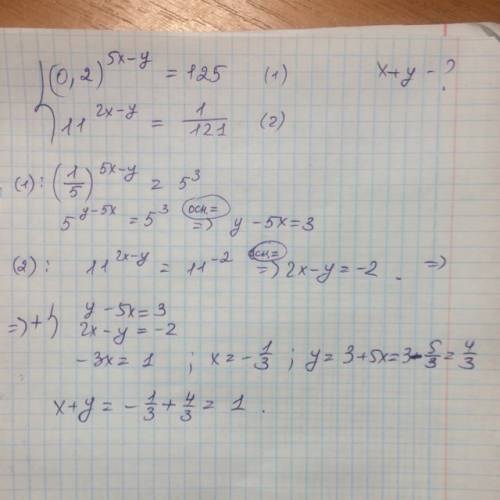 (0,2)^(5x-y) = 125 (1) x+y - ?
11^(2x-y) = 1/121 (2)
(1): (1/5)^(5x-y) = 5^3
5^(y-5x) = 5^3 осн.= => y - 5x = 3
(2): 11^(2x-y) = 11^(-2) осн.= => 2x-y = -2. =>
=> + { y - 5x = 3
2x - y = -2
-3x = 1 ; x = -1/3 ; y = 3+5x = 3 - 5/3 = 4/3
x+y = -1/3 + 4/3 = 1.